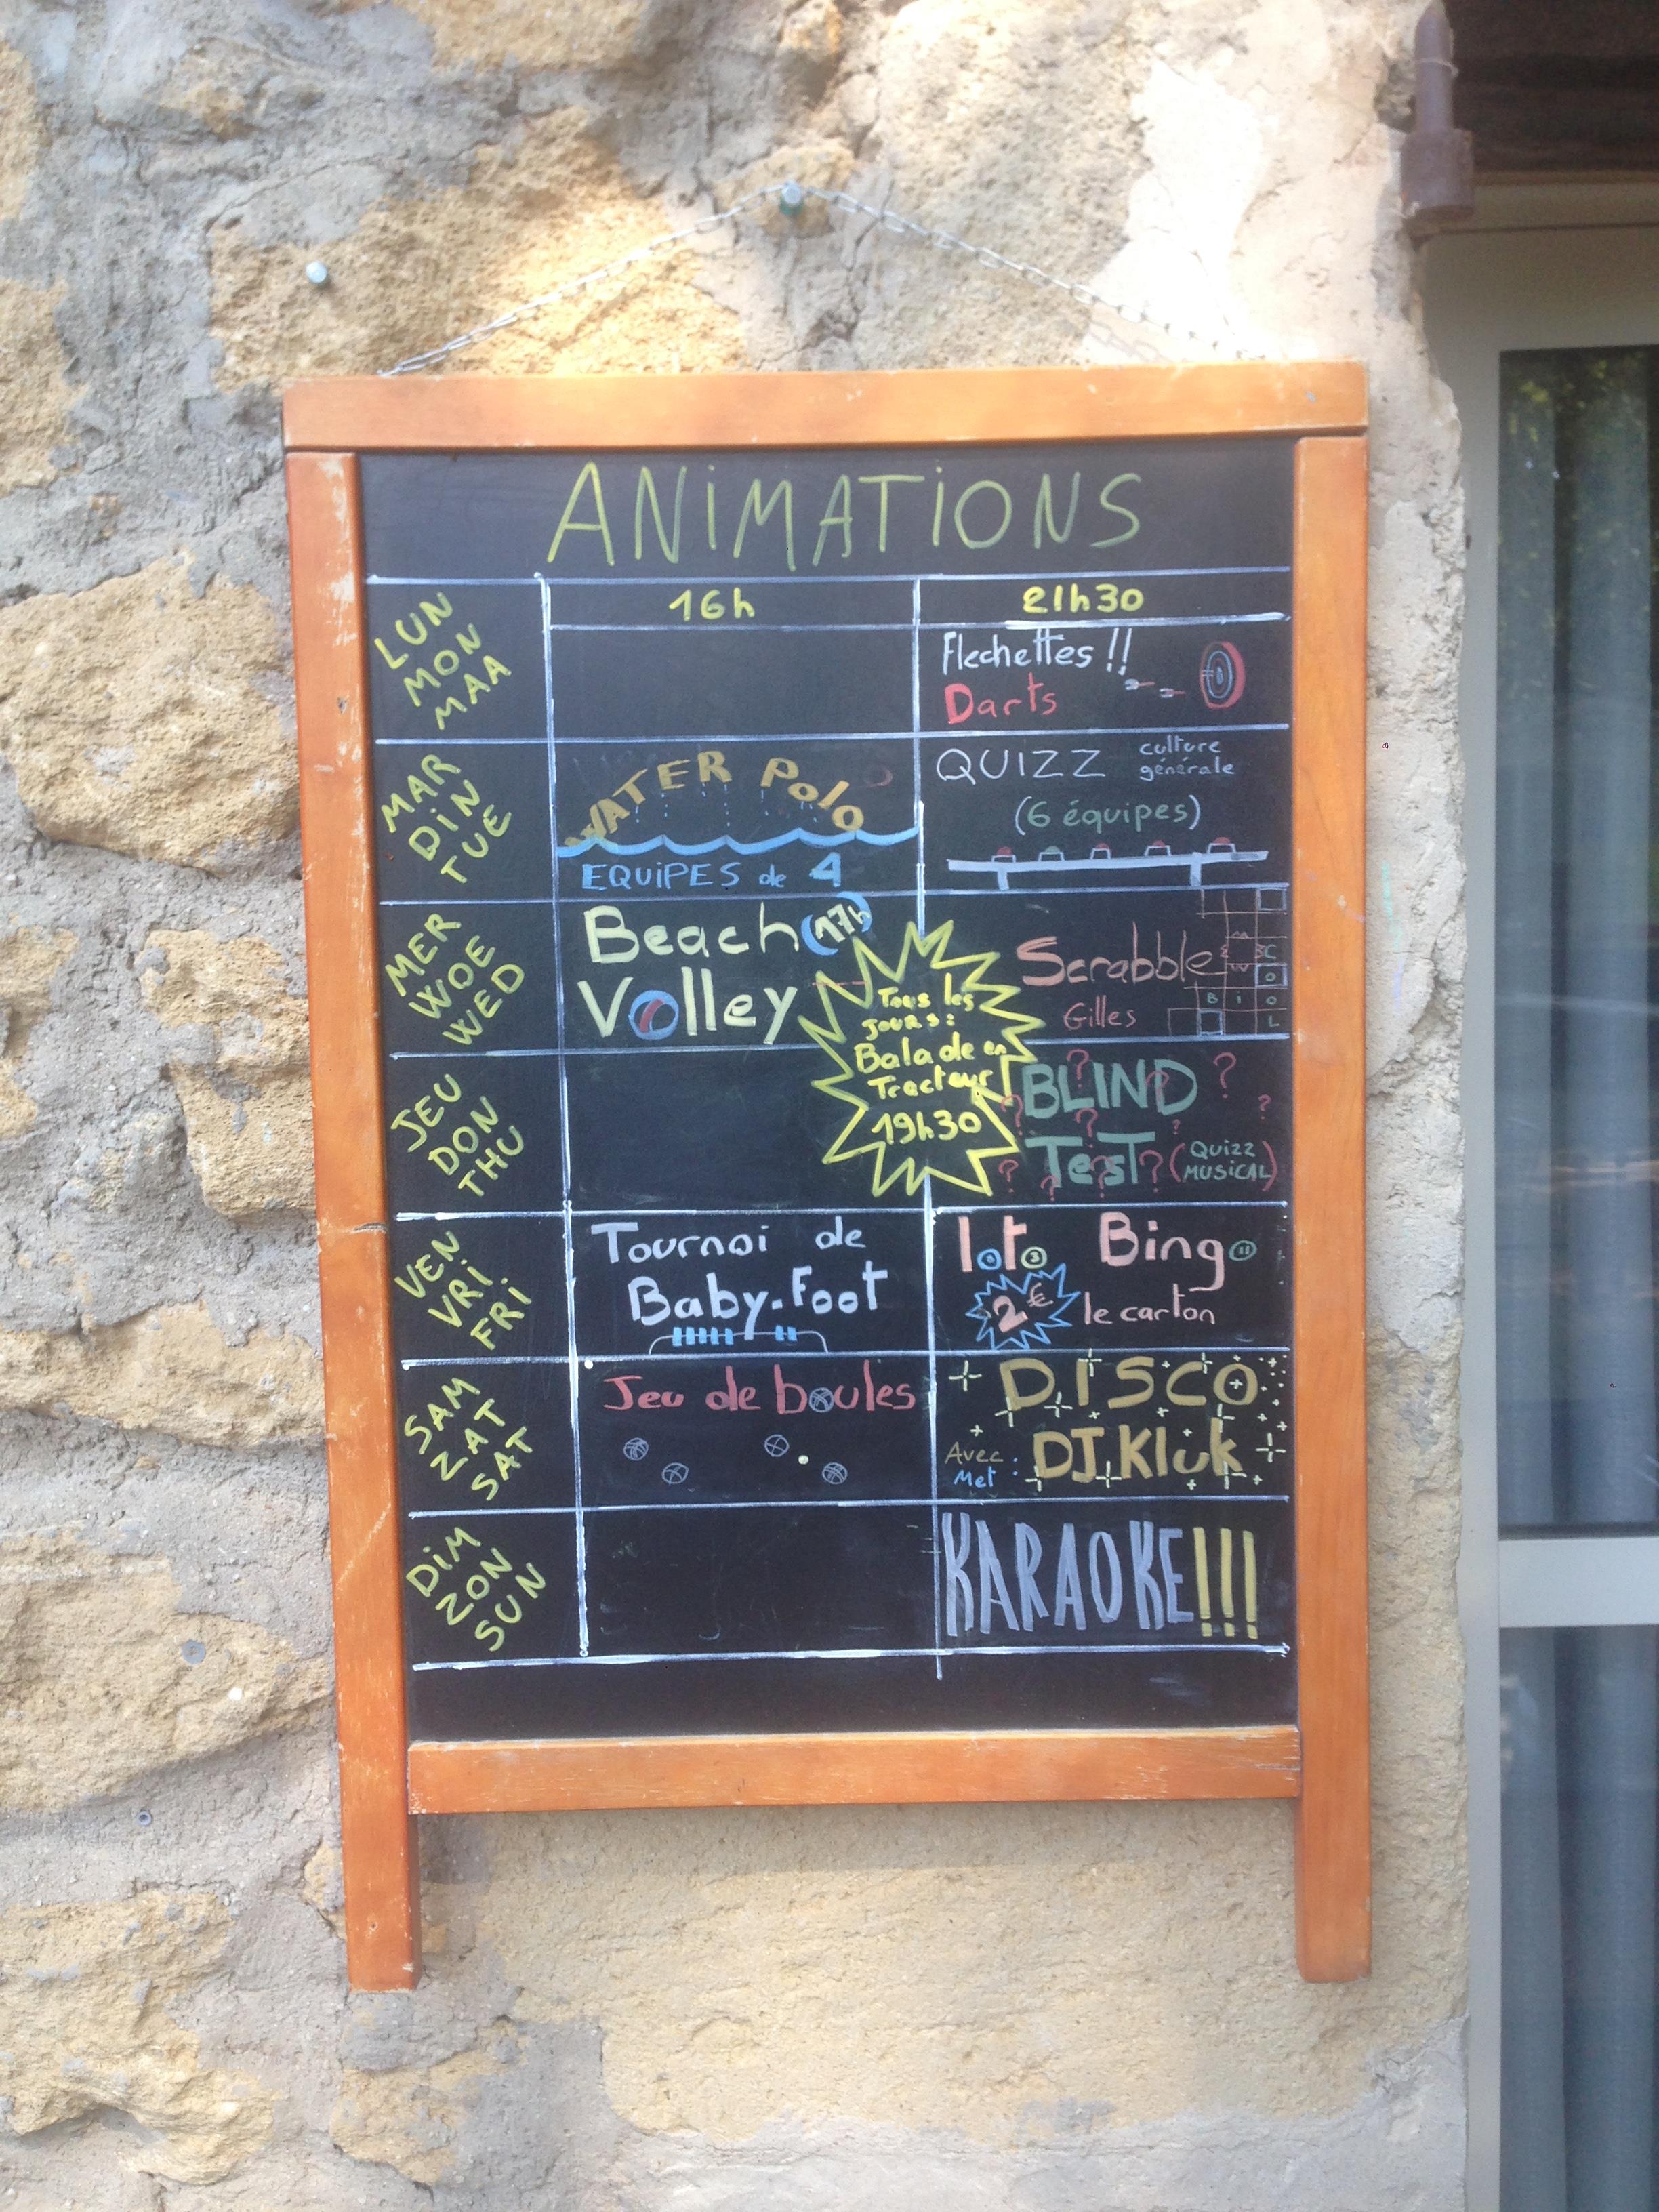 ANiMATiONS
16h 21h30
LUN
MON
MAA
Flechettes !!
Darts
MAR
DiN
TUE
WATER Polo
EQUiPES de 4
QUIZZ culture
générale
(6 équipes)
MER
WOE
WED
Beach (17h)
Volley
Scrabble
Gilles
C
O
B I O
L
Tous les
jours :
Balade en
Tracteur
19h30
JEU
DON
THU
BLIND
TesT (Quizz
MUSiCAL)
VEN
VRi
FRi
Tournoi de
Baby-Foot
loto Bingo
2€ le carton
SAM
ZAT
SAT
Jeu de boules
DISCO
Avec
Met : DJ.Kluk
DiM
ZON
SUN
KARAOKE!!!